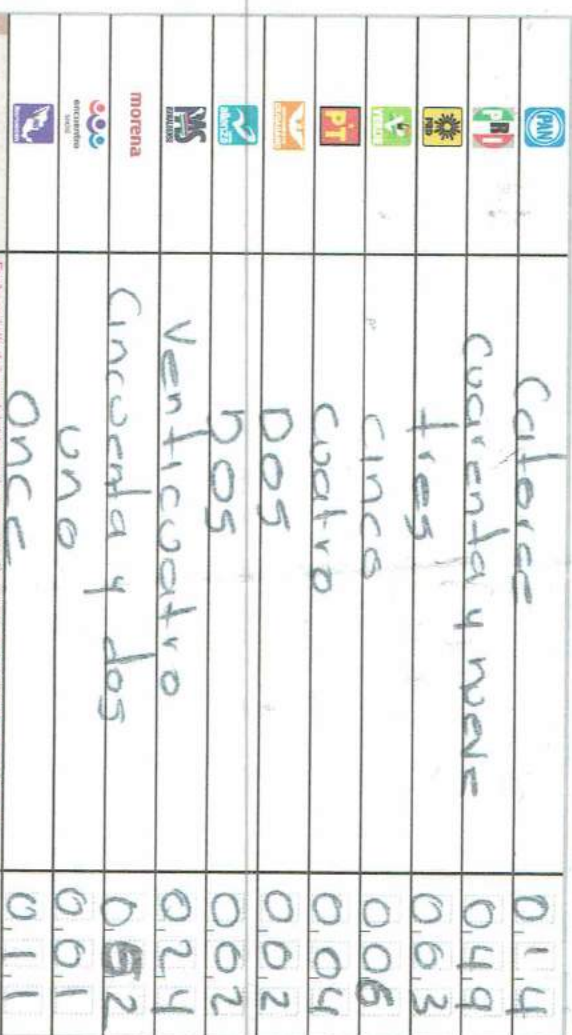 PAN Catorce 0 1 4
PRI Cuarenta y nueve 0 4 9
PRD tres 0 0 3
VERDE cinco 0 0 5
PT cuatro 0 0 4
Dos 0 0 2
alianza Dos 0 0 2
PAS Venticuatro 0 2 4
morena Cincuenta y dos 0 5 2
encuentro social uno 0 0 1
Once 0 1 1